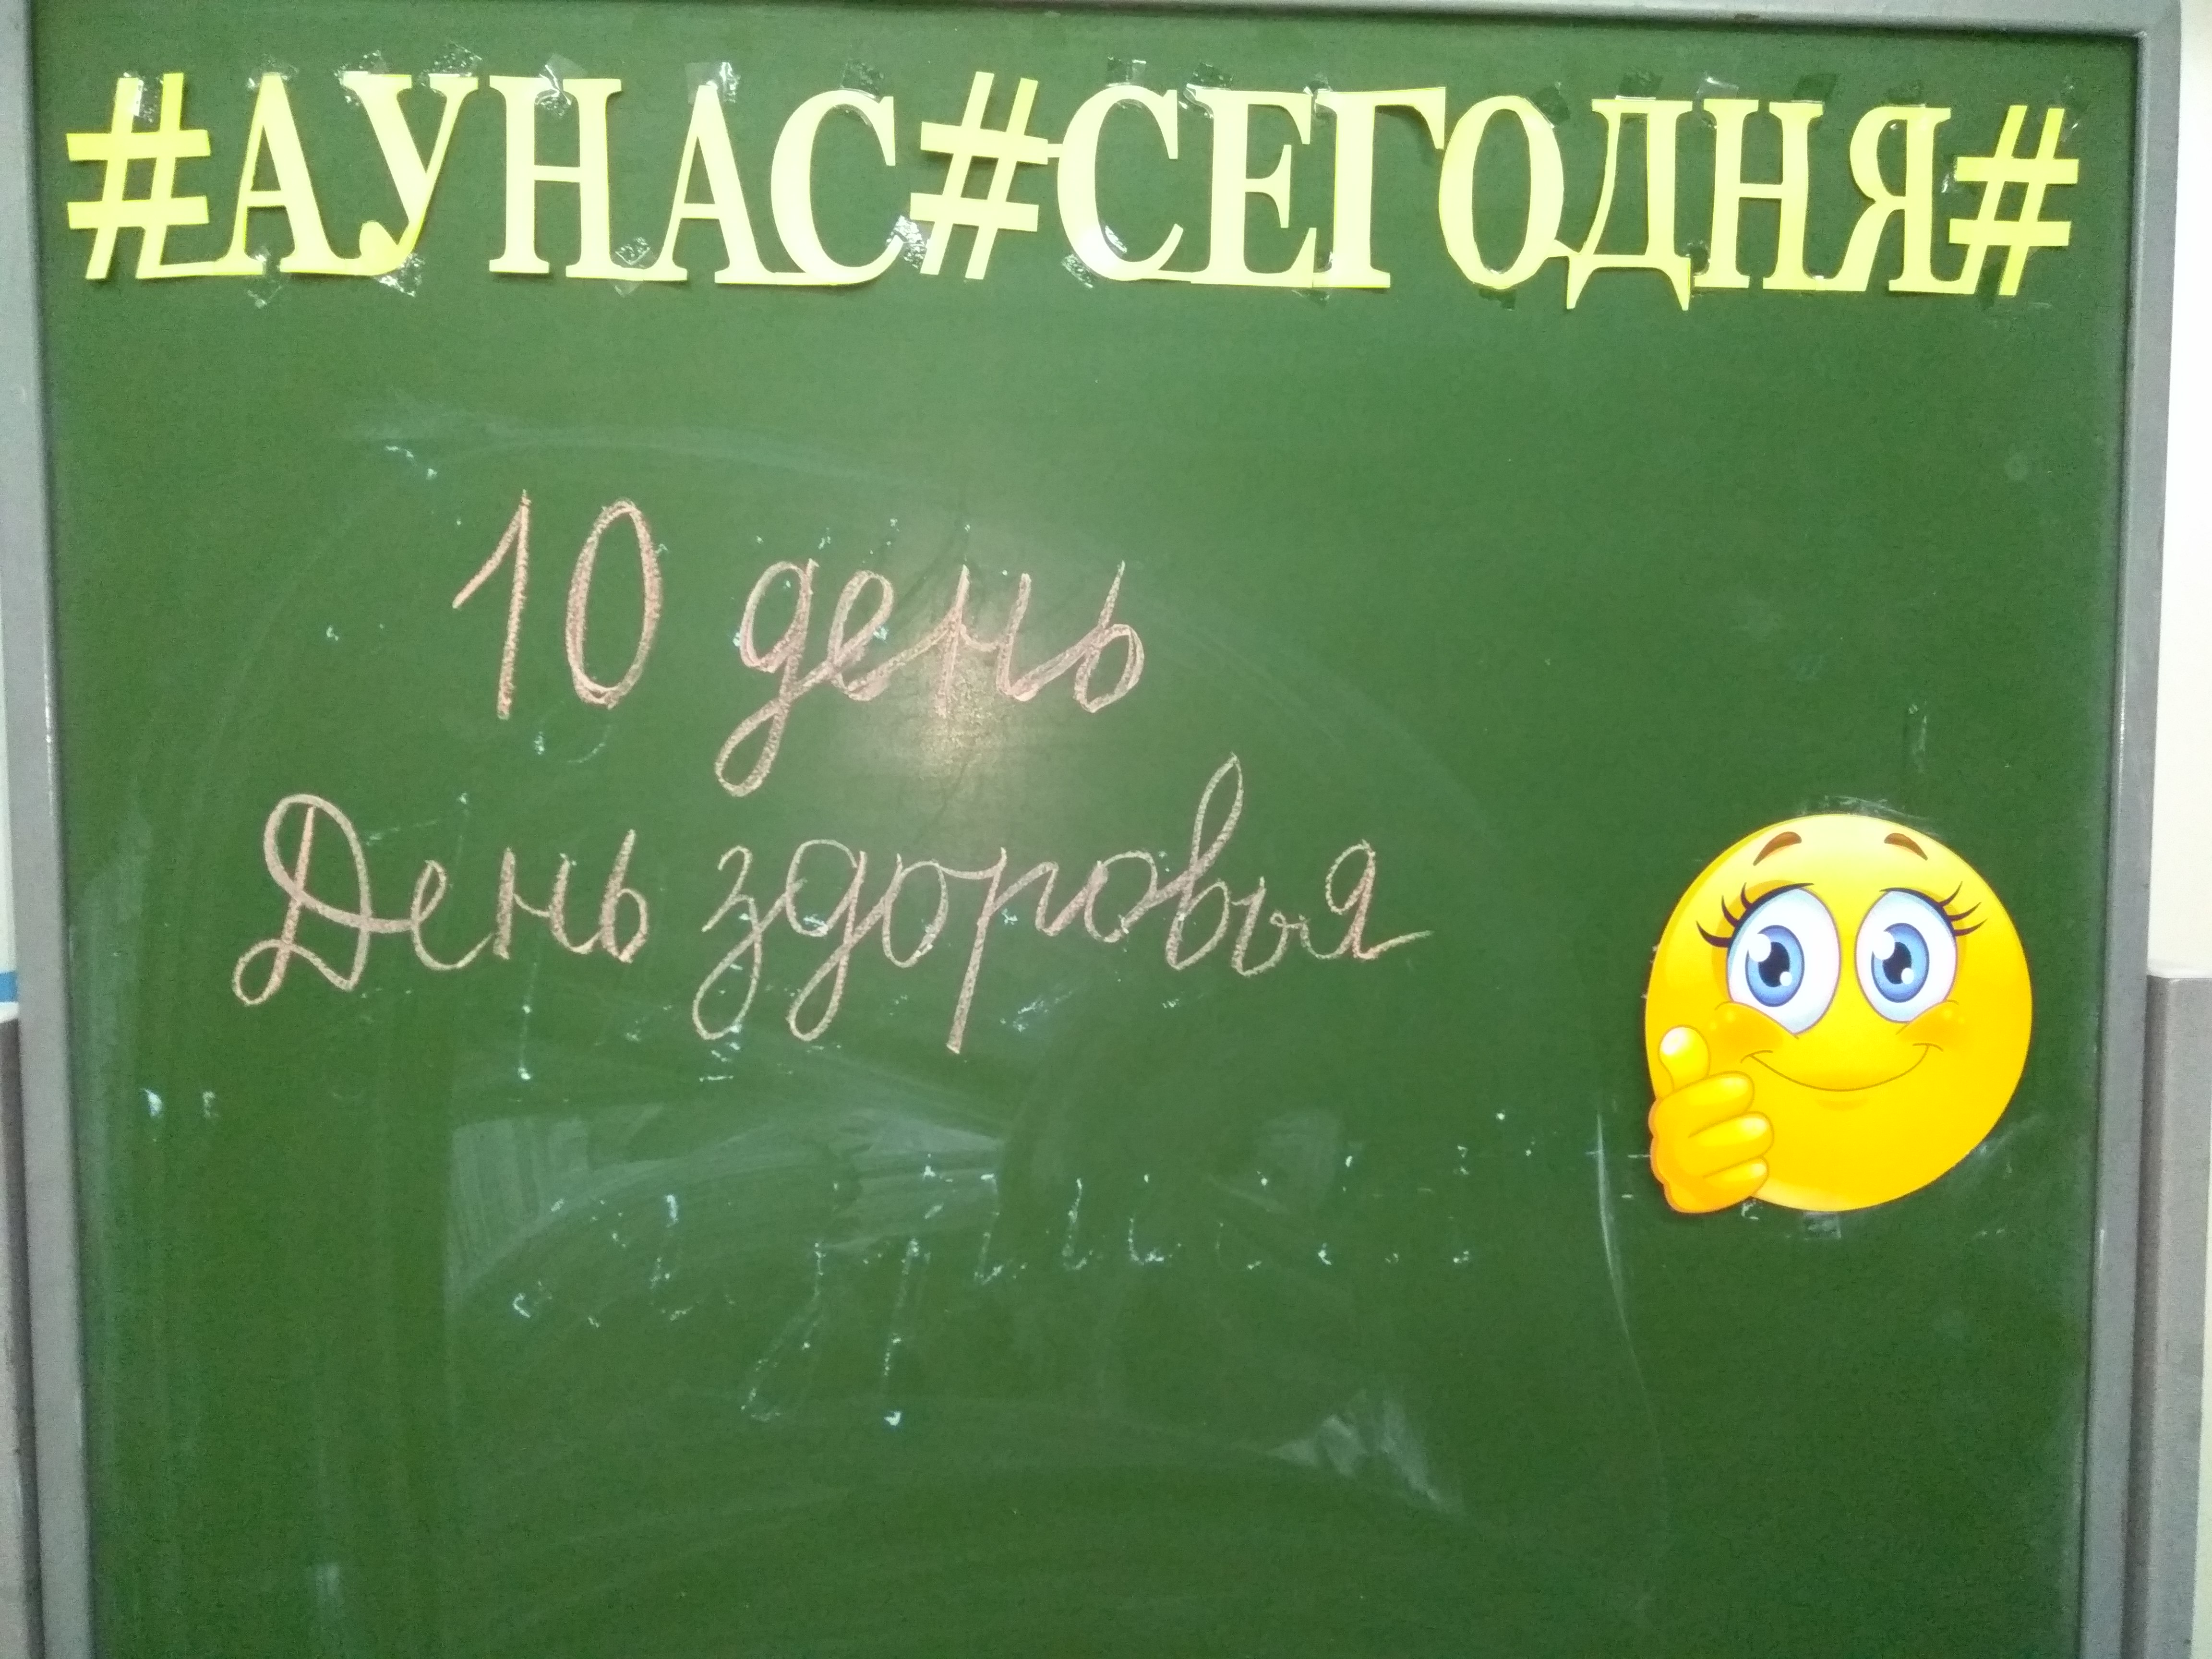 #АУНАС#СЕГОДНЯ#
10 день
День здоровья